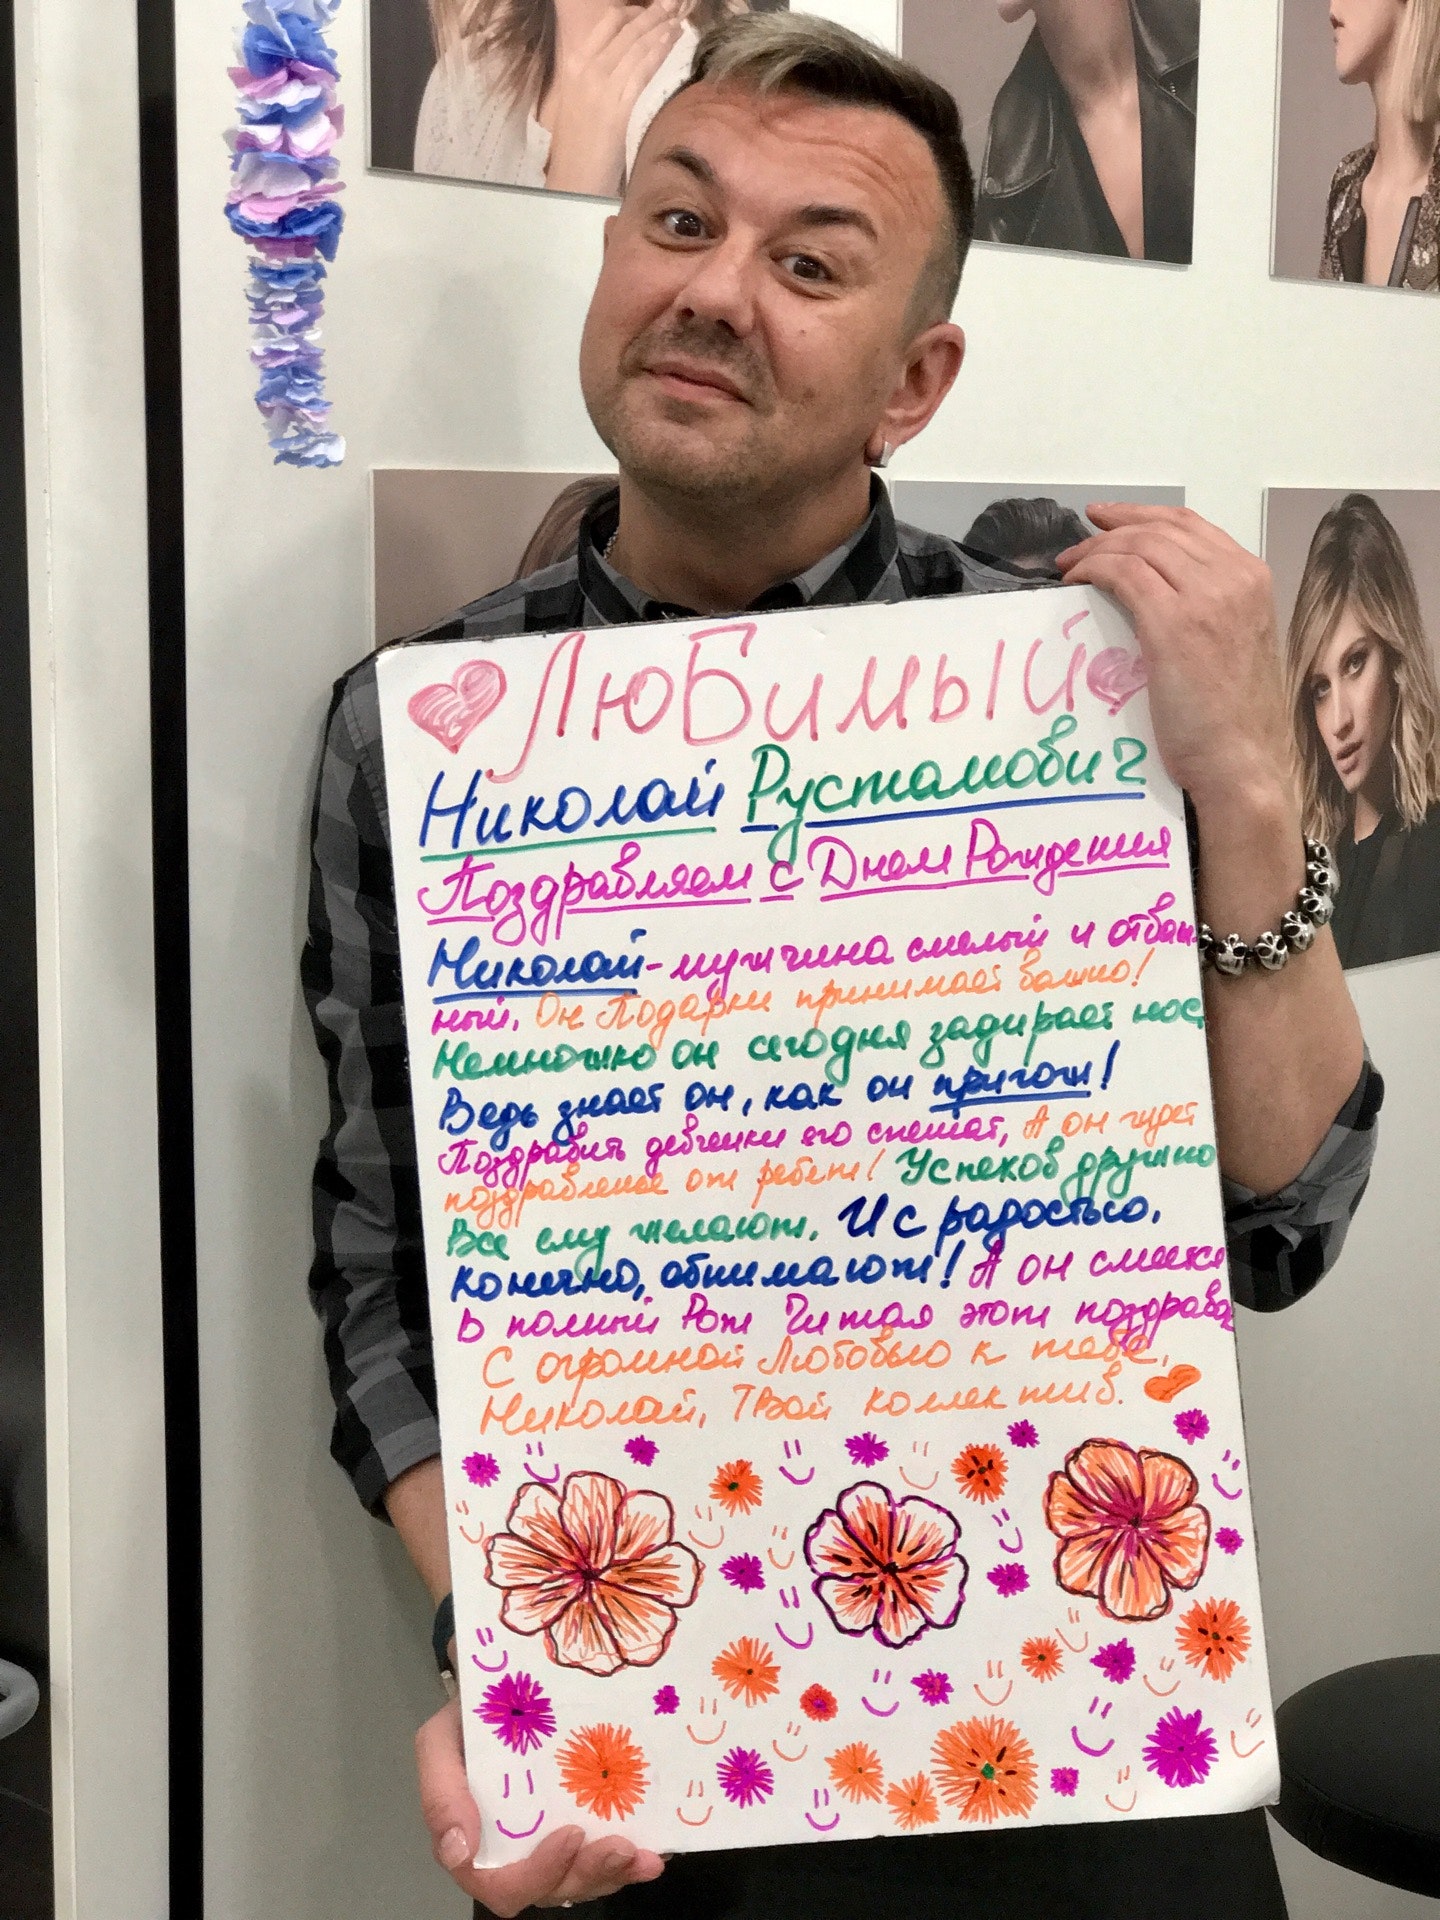 Любимый
Николай Рустамович
Поздравляем с Днем Рождения
Николай - мужчина смелый и отваж-
ный. Он Подарки принимает важно!
Немножко он сегодня задирает нос,
Ведь знает он, как он пригож!
Поздравить девченки его спешат, А он ждет
поздравленье от ребят! Успехов дружно
Все ему желают. И с радостью,
конечно, обнимают! А он смеется
в полный Рот Читая этот поздрав
С огромной Любовью к тебе,
Николай, Твой коллектив.